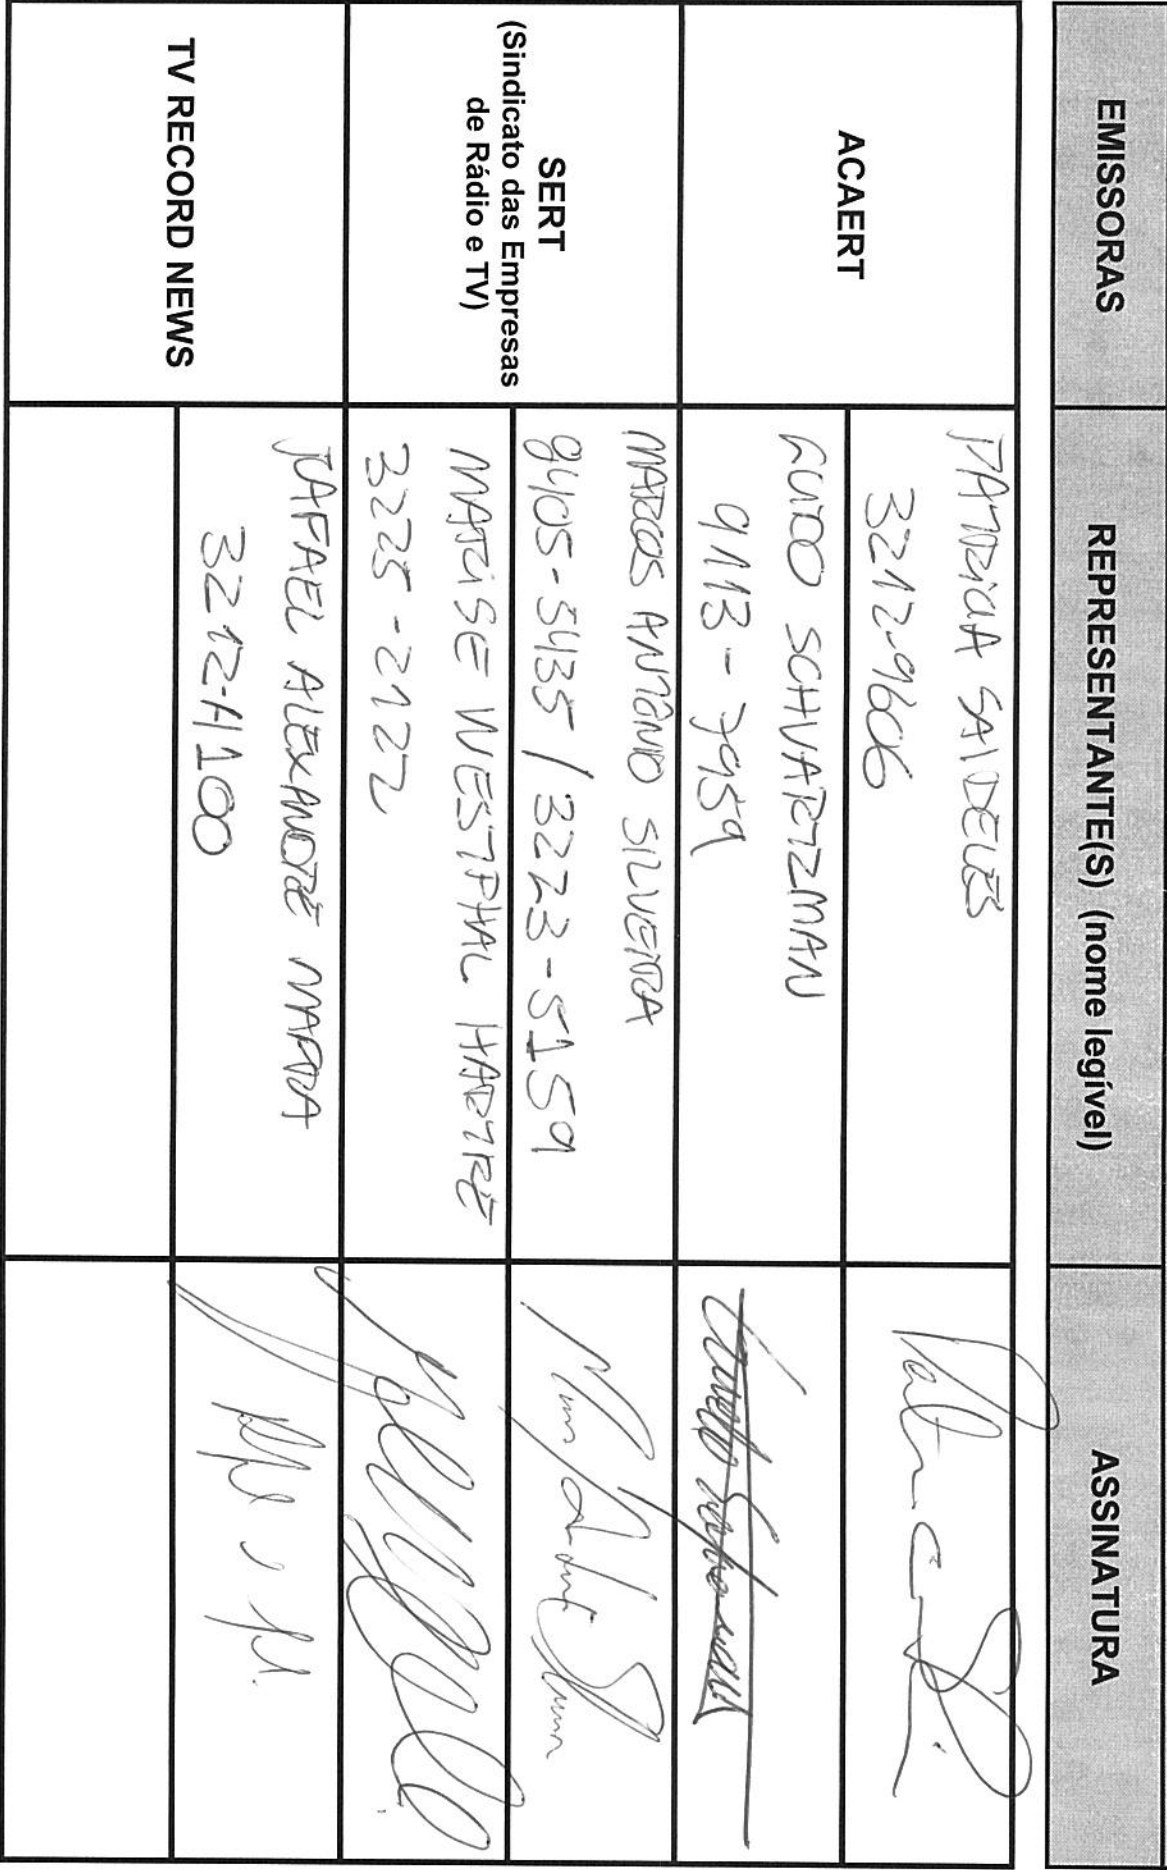 EMISSORAS
REPRESENTANTE(S) (nome legível)
ASSINATURA
ACAERT
PATRICIA SAIDELES
3212-9606
GUIDO SCHVARTZMAN
9113-7959
SERT
(Sindicato das Empresas
de Rádio e TV)
MARCOS ANTÔNIO SILVEIRA
8405-5435 / 3223-5159
MARISE WESTPHAL HARTKE
3225-2122
TV RECORD NEWS
RAFAEL ALEXANDRE MARRA
3212-4100